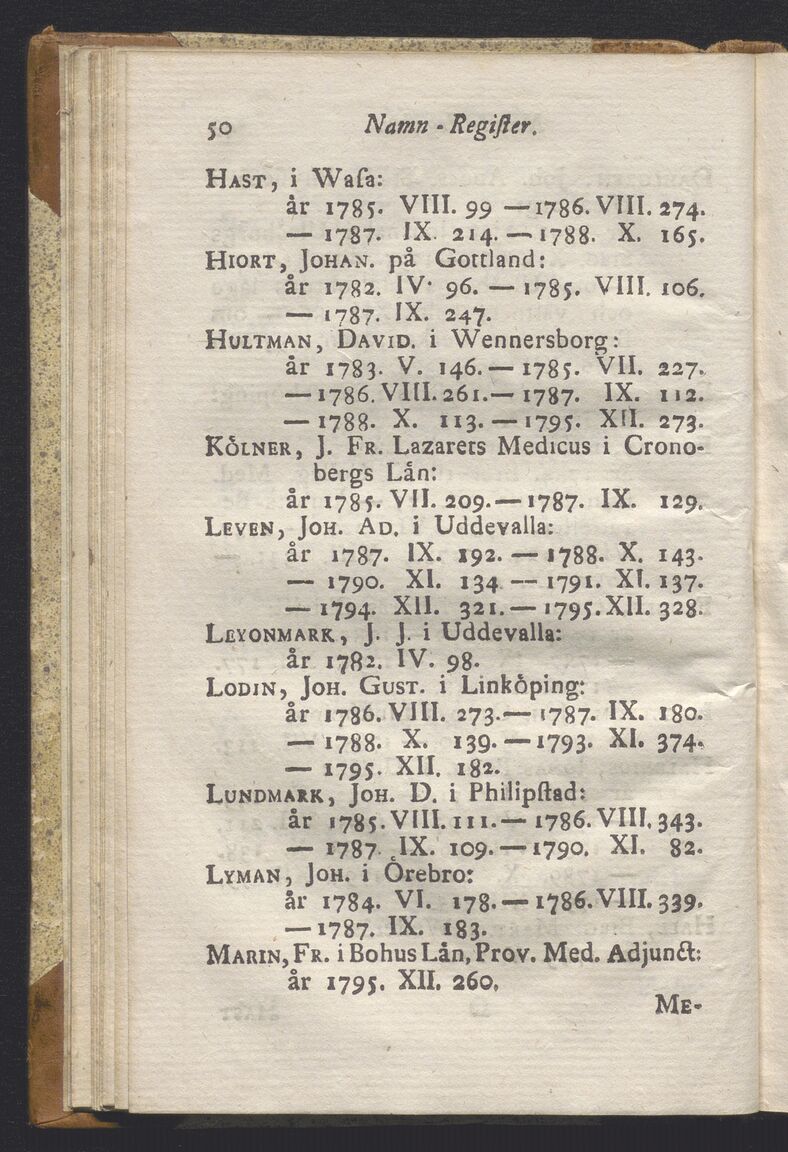 50 Namn - Regiſter.
HAST, i Waſa:
år 1785. VIII. 99 — 1786. VIII. 274.
— 1787. IX. 214. — 1788. X. 165.
HIORT, JOHAN. på Gottland:
år 1782. IV. 96. — 1785. VIII. 106.
— 1787. IX. 247.
HULTMAN, DAVID. i Wennersborg:
år 1783. V. 146. — 1785. VII. 227.
— 1786. VIII. 261. — 1787. IX. 112.
— 1788. X. 113. — 1795. XII. 273.
KÖLNER, J. FR. Lazarets Medicus i Crono-
bergs Lån:
år 1785. VII. 209. — 1787. IX. 129.
LEVEN, JOH. AD. i Uddevalla:
år 1787. IX. 192. — 1788. X. 143.
— 1790. XI. 134 — 1791. XI. 137.
— 1794. XII. 321. — 1795. XII. 328.
LEYONMARK, J. J. i Uddevalla:
år 1782. IV. 98.
LODIN, JOH. GUST. i Linköping:
år 1786. VIII. 273. — 1787. IX. 180.
— 1788. X. 139. — 1793. XI. 374.
— 1795. XII. 182.
LUNDMARK, JOH. D. i Philipſtad:
år 1785. VIII. 111. — 1786. VIII. 343.
— 1787. IX. 109. — 1790. XI. 82.
LYMAN, JOH. i Örebro:
år 1784. VI. 178. — 1786. VIII. 339.
— 1787. IX. 183.
MARIN, FR. i Bohus Lån, Prov. Med. Adjunct:
år 1795. XII. 260.
ME-